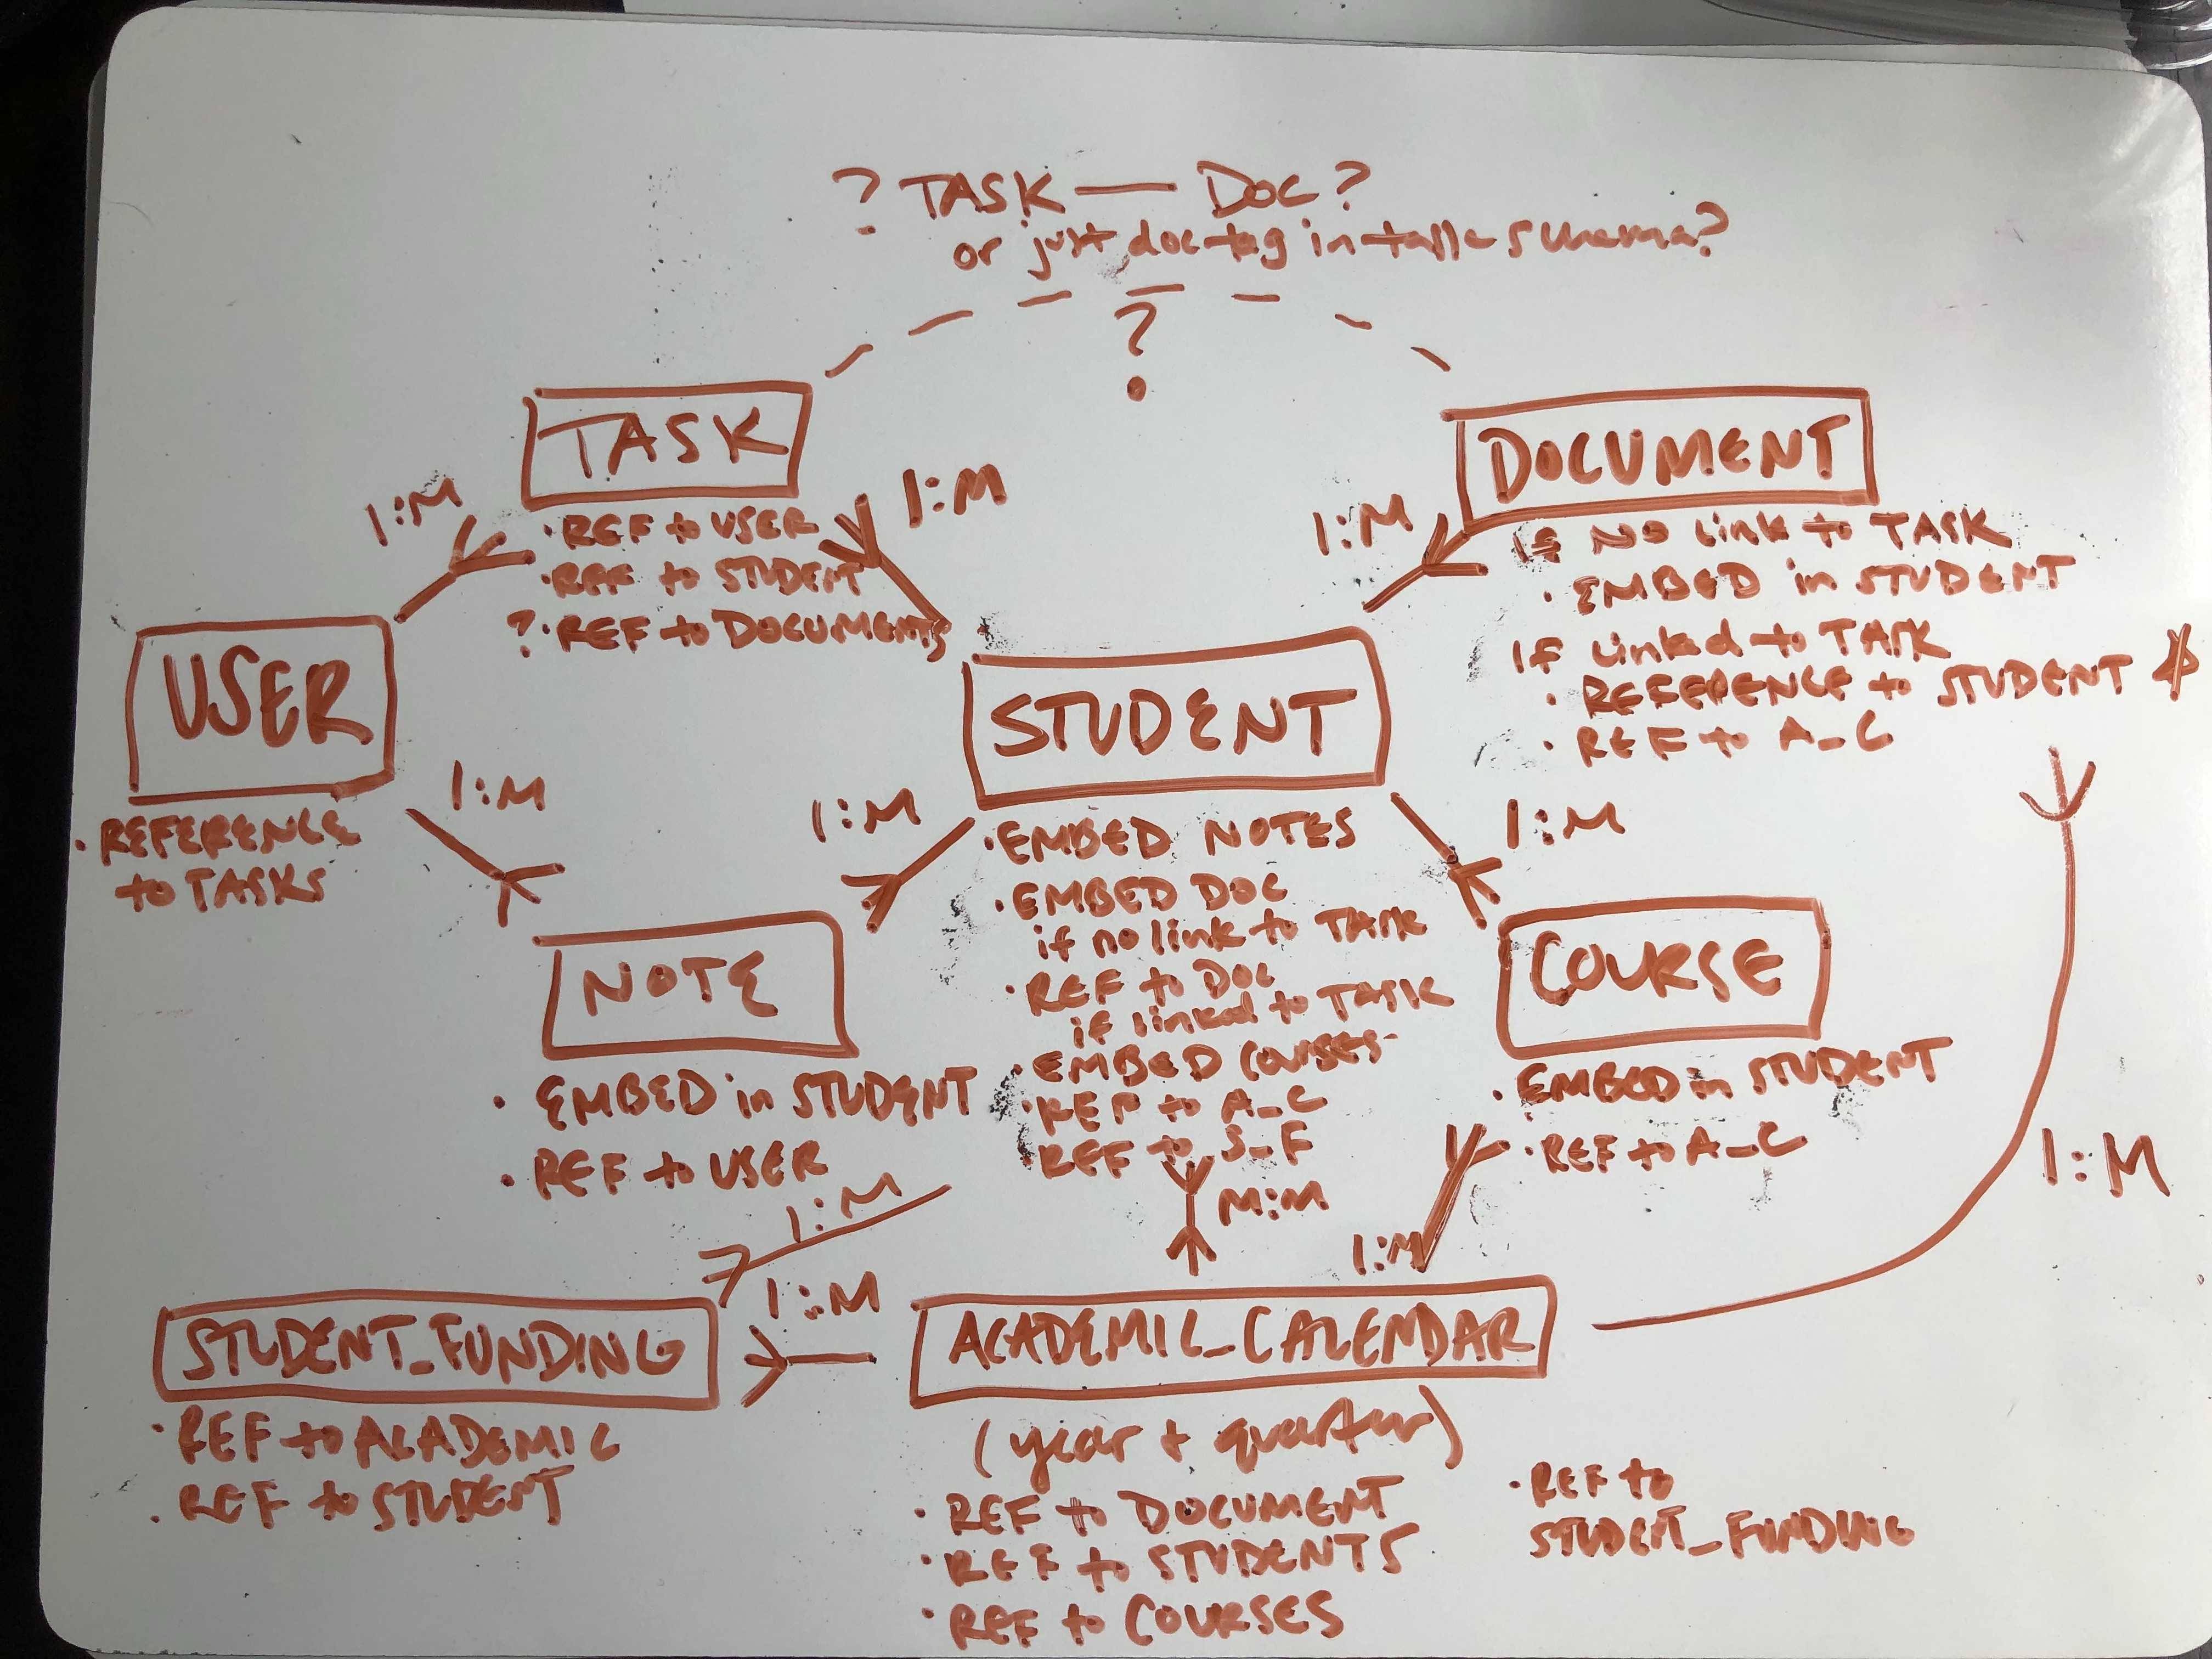 ? TASK — DOC?
or just doc tag in task schema?
?
TASK
1:M
1:M
• REF to USER
• REF to STUDENT
? • REF to DOCUMENTS
DOCUMENT
1:M
IF NO Link to TASK
• EMBED in STUDENT
IF Linked to TASK
• REFERENCE to STUDENT
• REF to A_C
USER
• REFERENCE
to TASKS
1:M
STUDENT
1:M
1:M
• EMBED NOTES
• EMBED DOC
if no link to TASK
• REF to DOC
if linked to TASK
• EMBED COURSES
• REF to A_C
• REF to S_F
NOTE
• EMBED in STUDENT
• REF to USER
COURSE
• EMBED in STUDENT
• REF to A_C
1:M
M:M
1:M
1:M
1:M
STUDENT_FUNDING
• REF to ACADEMIC
• REF to STUDENT
ACADEMIC_CALENDAR
(year + quarter)
• REF to DOCUMENT
• REF to STUDENTS
• REF to COURSES
• REF to
STUDENT_FUNDING